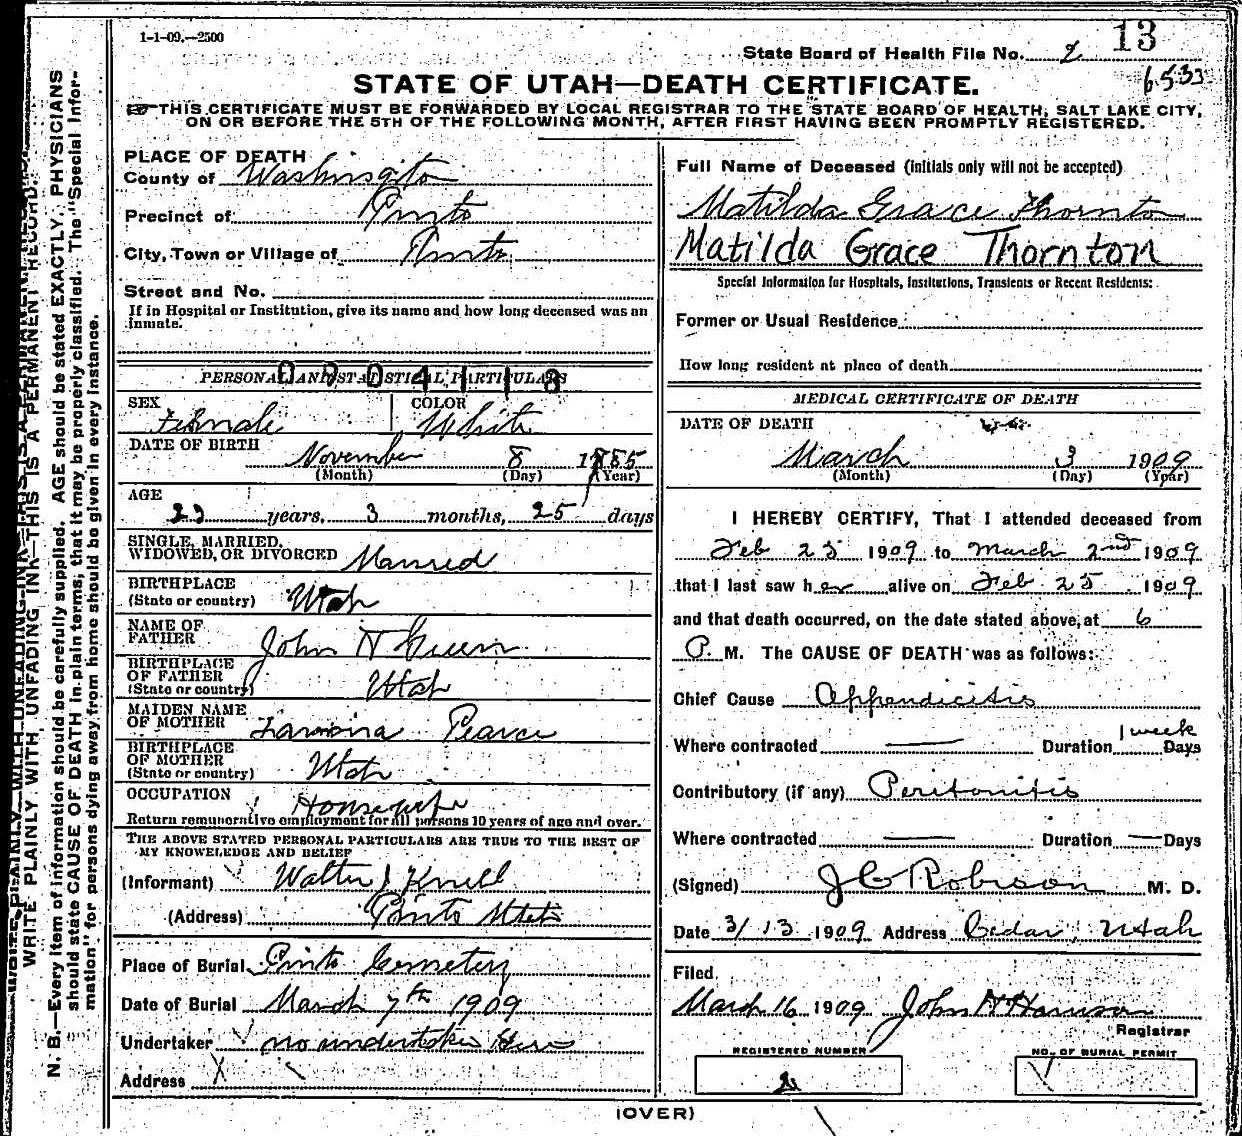 1-1-09.—2500
13
State Board of Health File No. 2
6533
STATE OF UTAH—DEATH CERTIFICATE.
THIS CERTIFICATE MUST BE FORWARDED BY LOCAL REGISTRAR TO THE STATE BOARD OF HEALTH, SALT LAKE CITY,
ON OR BEFORE THE 5TH OF THE FOLLOWING MONTH, AFTER FIRST HAVING BEEN PROMPTLY REGISTERED.
WRITE PLAINLY WITH UNFADING INK—THIS IS A PERMANENT RECORD.
N. B.—Every item of information should be carefully supplied. AGE should be stated EXACTLY. PHYSICIANS
should state CAUSE OF DEATH in plain terms, that it may be properly classified. The "Special Infor-
mation" for persons dying away from home should be given in every instance.
PLACE OF DEATH
County of Washington
Precinct of Pinto
City, Town or Village of Pinto
Street and No.
If in Hospital or Institution, give its name and how long deceased was an
inmate.
PERSONAL AND STATISTICAL PARTICULARS
0904118
SEX Female
COLOR White
DATE OF BIRTH
November 8 1885
(Month) (Day) (Year)
AGE
23 years, 3 months, 25 days
SINGLE, MARRIED,
WIDOWED, OR DIVORCED Married
BIRTHPLACE
(State or country) Utah
NAME OF
FATHER John H
BIRTHPLACE
OF FATHER
(State or country) Utah
MAIDEN NAME
OF MOTHER Pearce
BIRTHPLACE
OF MOTHER
(State or country) Utah
OCCUPATION
Housewife
Return remunerative employment for all persons 10 years of age and over.
THE ABOVE STATED PERSONAL PARTICULARS ARE TRUE TO THE BEST OF
MY KNOWLEDGE AND BELIEF
(Informant) Walter J Knell
(Address) Pinto Utah
Place of Burial Pinto Cemetery
Date of Burial March 7th 1909
Undertaker no undertaker here
Address
Full Name of Deceased (initials only will not be accepted)
Matilda Grace Thornton
Matilda Grace Thornton
Special Information for Hospitals, Institutions, Transients or Recent Residents:
Former or Usual Residence
How long resident at place of death
MEDICAL CERTIFICATE OF DEATH
DATE OF DEATH
March 3 1909
(Month) (Day) (Year)
I HEREBY CERTIFY, That I attended deceased from
Feb 23 1909 to March 2nd 1909
that I last saw her alive on Feb 25 1909
and that death occurred, on the date stated above, at 6
P. M. The CAUSE OF DEATH was as follows:
Chief Cause Appendicitis
Where contracted — Duration 1 week Days
Contributory (if any) Peritonitis
Where contracted — Duration — Days
(Signed) J C Robison M. D.
Date 3/13 1909 Address Cedar, Utah
Filed
March 16 1909 John H Harrison
Registrar
REGISTERED NUMBER
2
NO. OF BURIAL PERMIT
(OVER)